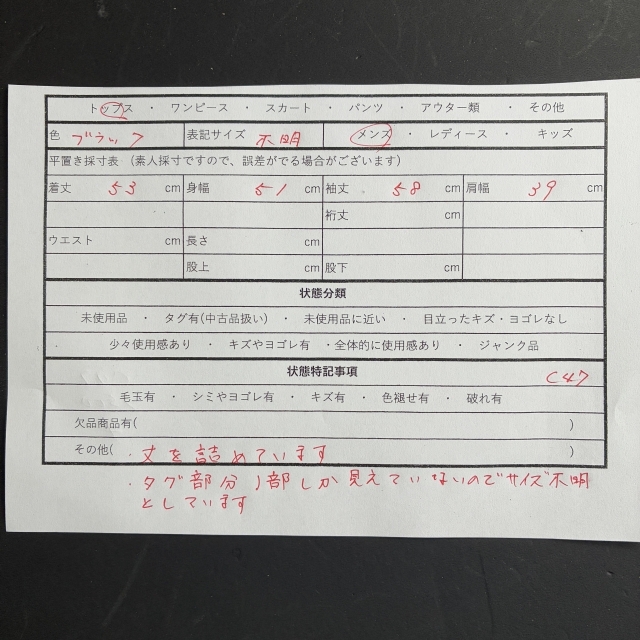 トップス ・ ワンピース ・ スカート ・ パンツ ・ アウター類 ・ その他
色 ブラック 表記サイズ 不明 メンズ ・ レディース ・ キッズ
平置き採寸表 (素人採寸ですので、誤差がでる場合がございます)
着丈 53 cm 身幅 51 cm 袖丈 58 cm 肩幅 39 cm
裄丈 cm
ウエスト cm 長さ cm
股上 cm 股下 cm
状態分類
未使用品 ・ タグ有(中古品扱い) ・ 未使用品に近い ・ 目立ったキズ・ヨゴレなし
少々使用感あり ・ キズやヨゴレ有 ・全体的に使用感あり ・ ジャンク品
状態特記事項
C47
毛玉有 ・ シミやヨゴレ有 ・ キズ有 ・ 色褪せ有 ・ 破れ有
欠品商品有( )
その他( ・丈を詰めています )
・タグ部分1部しか見えていないのでサイズ不明
としています